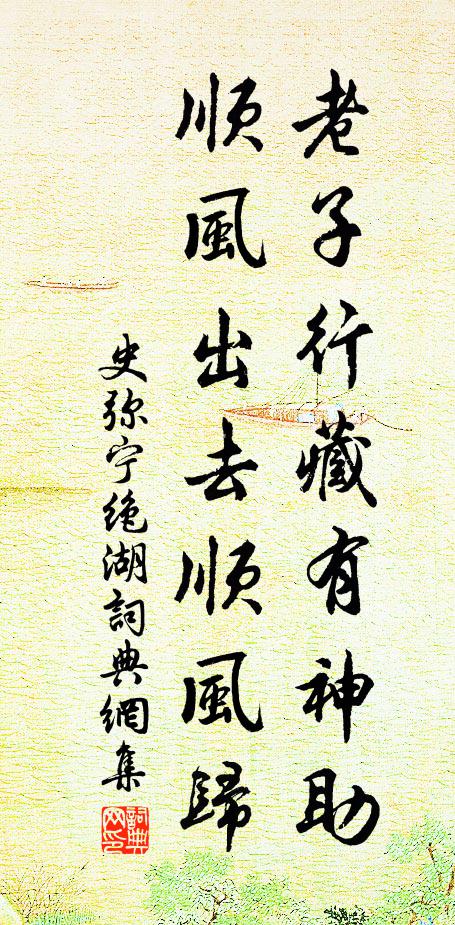 老子行藏有神助
順風出去順風歸
史弥宁绝湖詞典網集
詞典网印